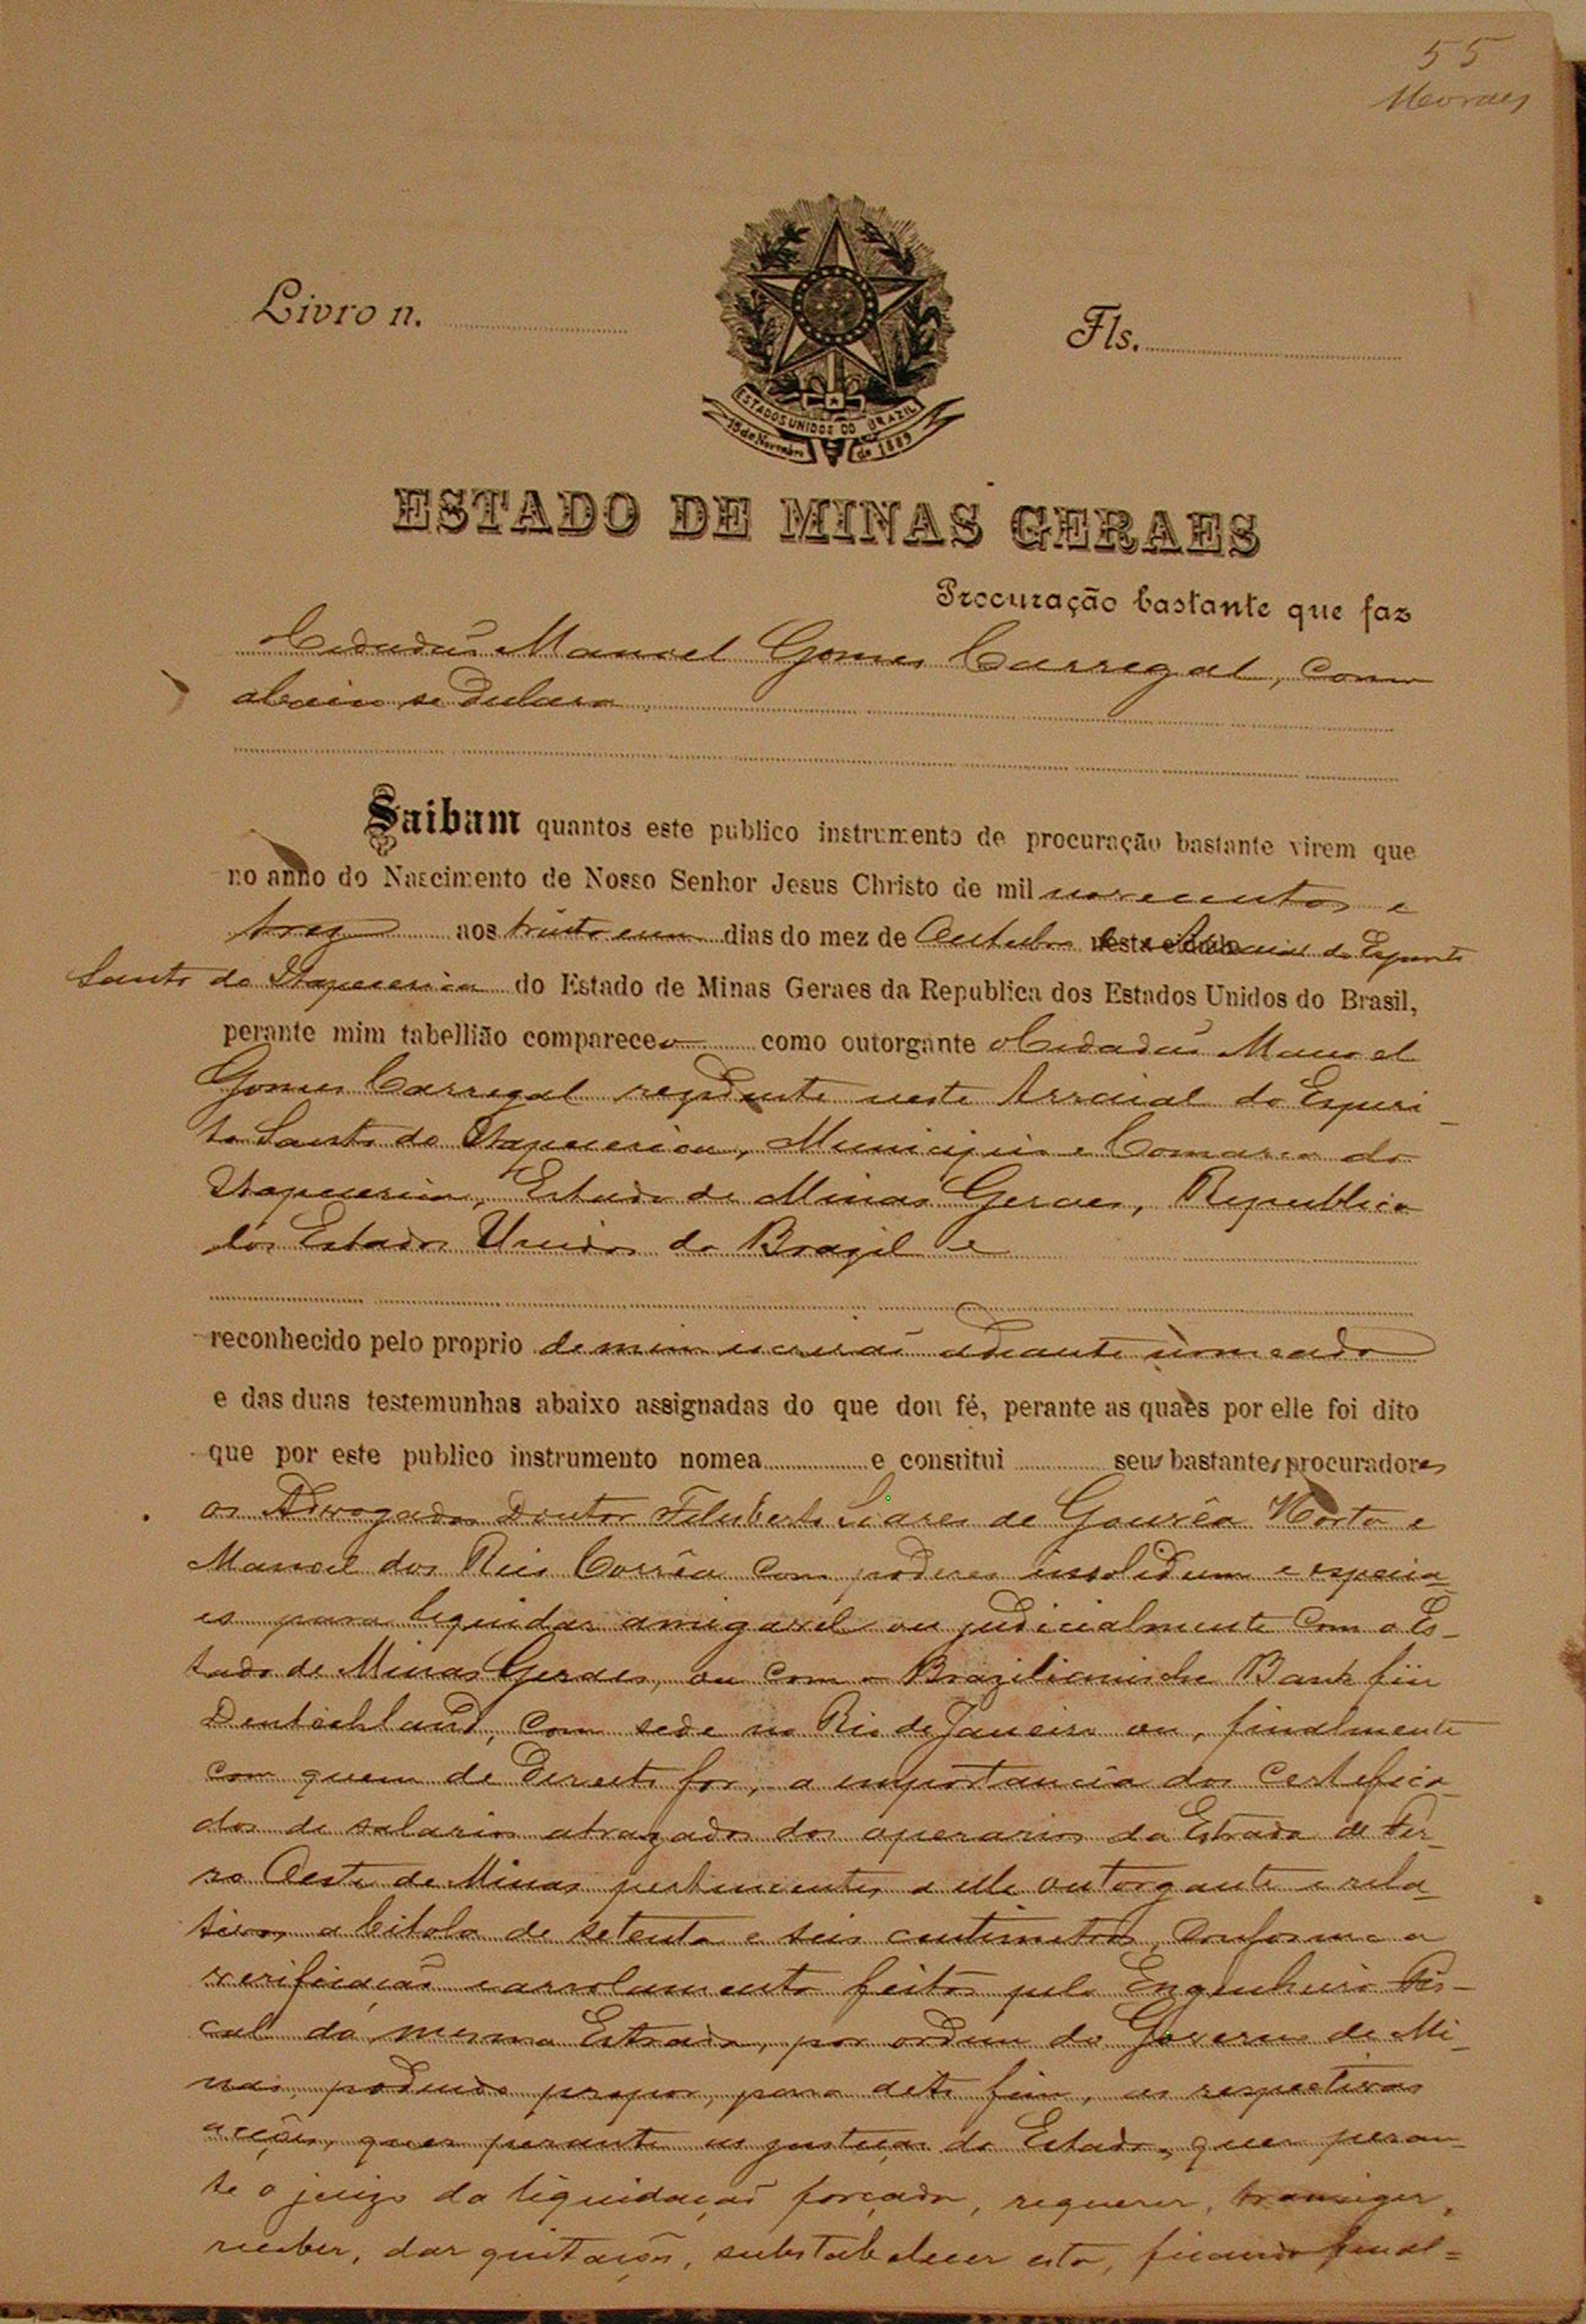 55
Moraes
Livro n.
Fls.
ESTADOS UNIDOS DO BRAZIL
15 de Novembro de 1889
ESTADO DE MINAS GERAES
Procuração bastante que faz
Cidadão Manoel Gomes Carregal, como
abaixo se declara
Saibam quantos este publico instrumento de procuração bastante virem que
no anno do Nascimento de Nosso Senhor Jesus Christo de mil novecentos e
trez aos trinta e um dias do mez de Outubro neste Arraial do Espirito
Santo do Itapecerica do Estado de Minas Geraes da Republica dos Estados Unidos do Brasil,
perante mim tabellião compareceu como outorgante o Cidadão Manoel
Gomes Carregal rezidente neste Arraial do Espiri
to Santo do Itapecerica, Municipio e Comarca do
Itapecerica, Estado de Minas Geraes, Republica
dos Estados Unidos do Brazil e
reconhecido pelo proprio de mim escrivão adiante nomeado
e das duas testemunhas abaixo assignadas do que dou fé, perante as quaes por elle foi dito
que por este publico instrumento nomea e constitui seus bastantes procuradores
os Advogados Doutor Feliberto Soares de Gouvêa Horta e
Manoel dos Reis Corrêa com poderes insolidum e especia
es para liquidar amigavel ou judicialmente com o Es-
tado de Minas Geraes, ou com o Brazilianische Bank für
Deutschland, com sede no Rio de Janeiro ou, finalmente
com quem de direito for, a importancia dos certefica
dos de salarios atrazados dos operarios da Estrada de Fer-
ro Oeste de Minas pertencentes a elle outorgante e rela
tivos a bitola de setenta e seis centimetros, conforme a
verificação e arrolamento feitos pelo Engenheiro Fis-
cal da mesma Estrada, por ordem do Governo de Mi
nas, podendo propor, para este fim, as respectivas
acções, quer perante as justiças do Estado, quer peran
te o juizo da liquidação forçada, requerer, transiger,
receber, dar quitação, substabelecer esta, ficando final=